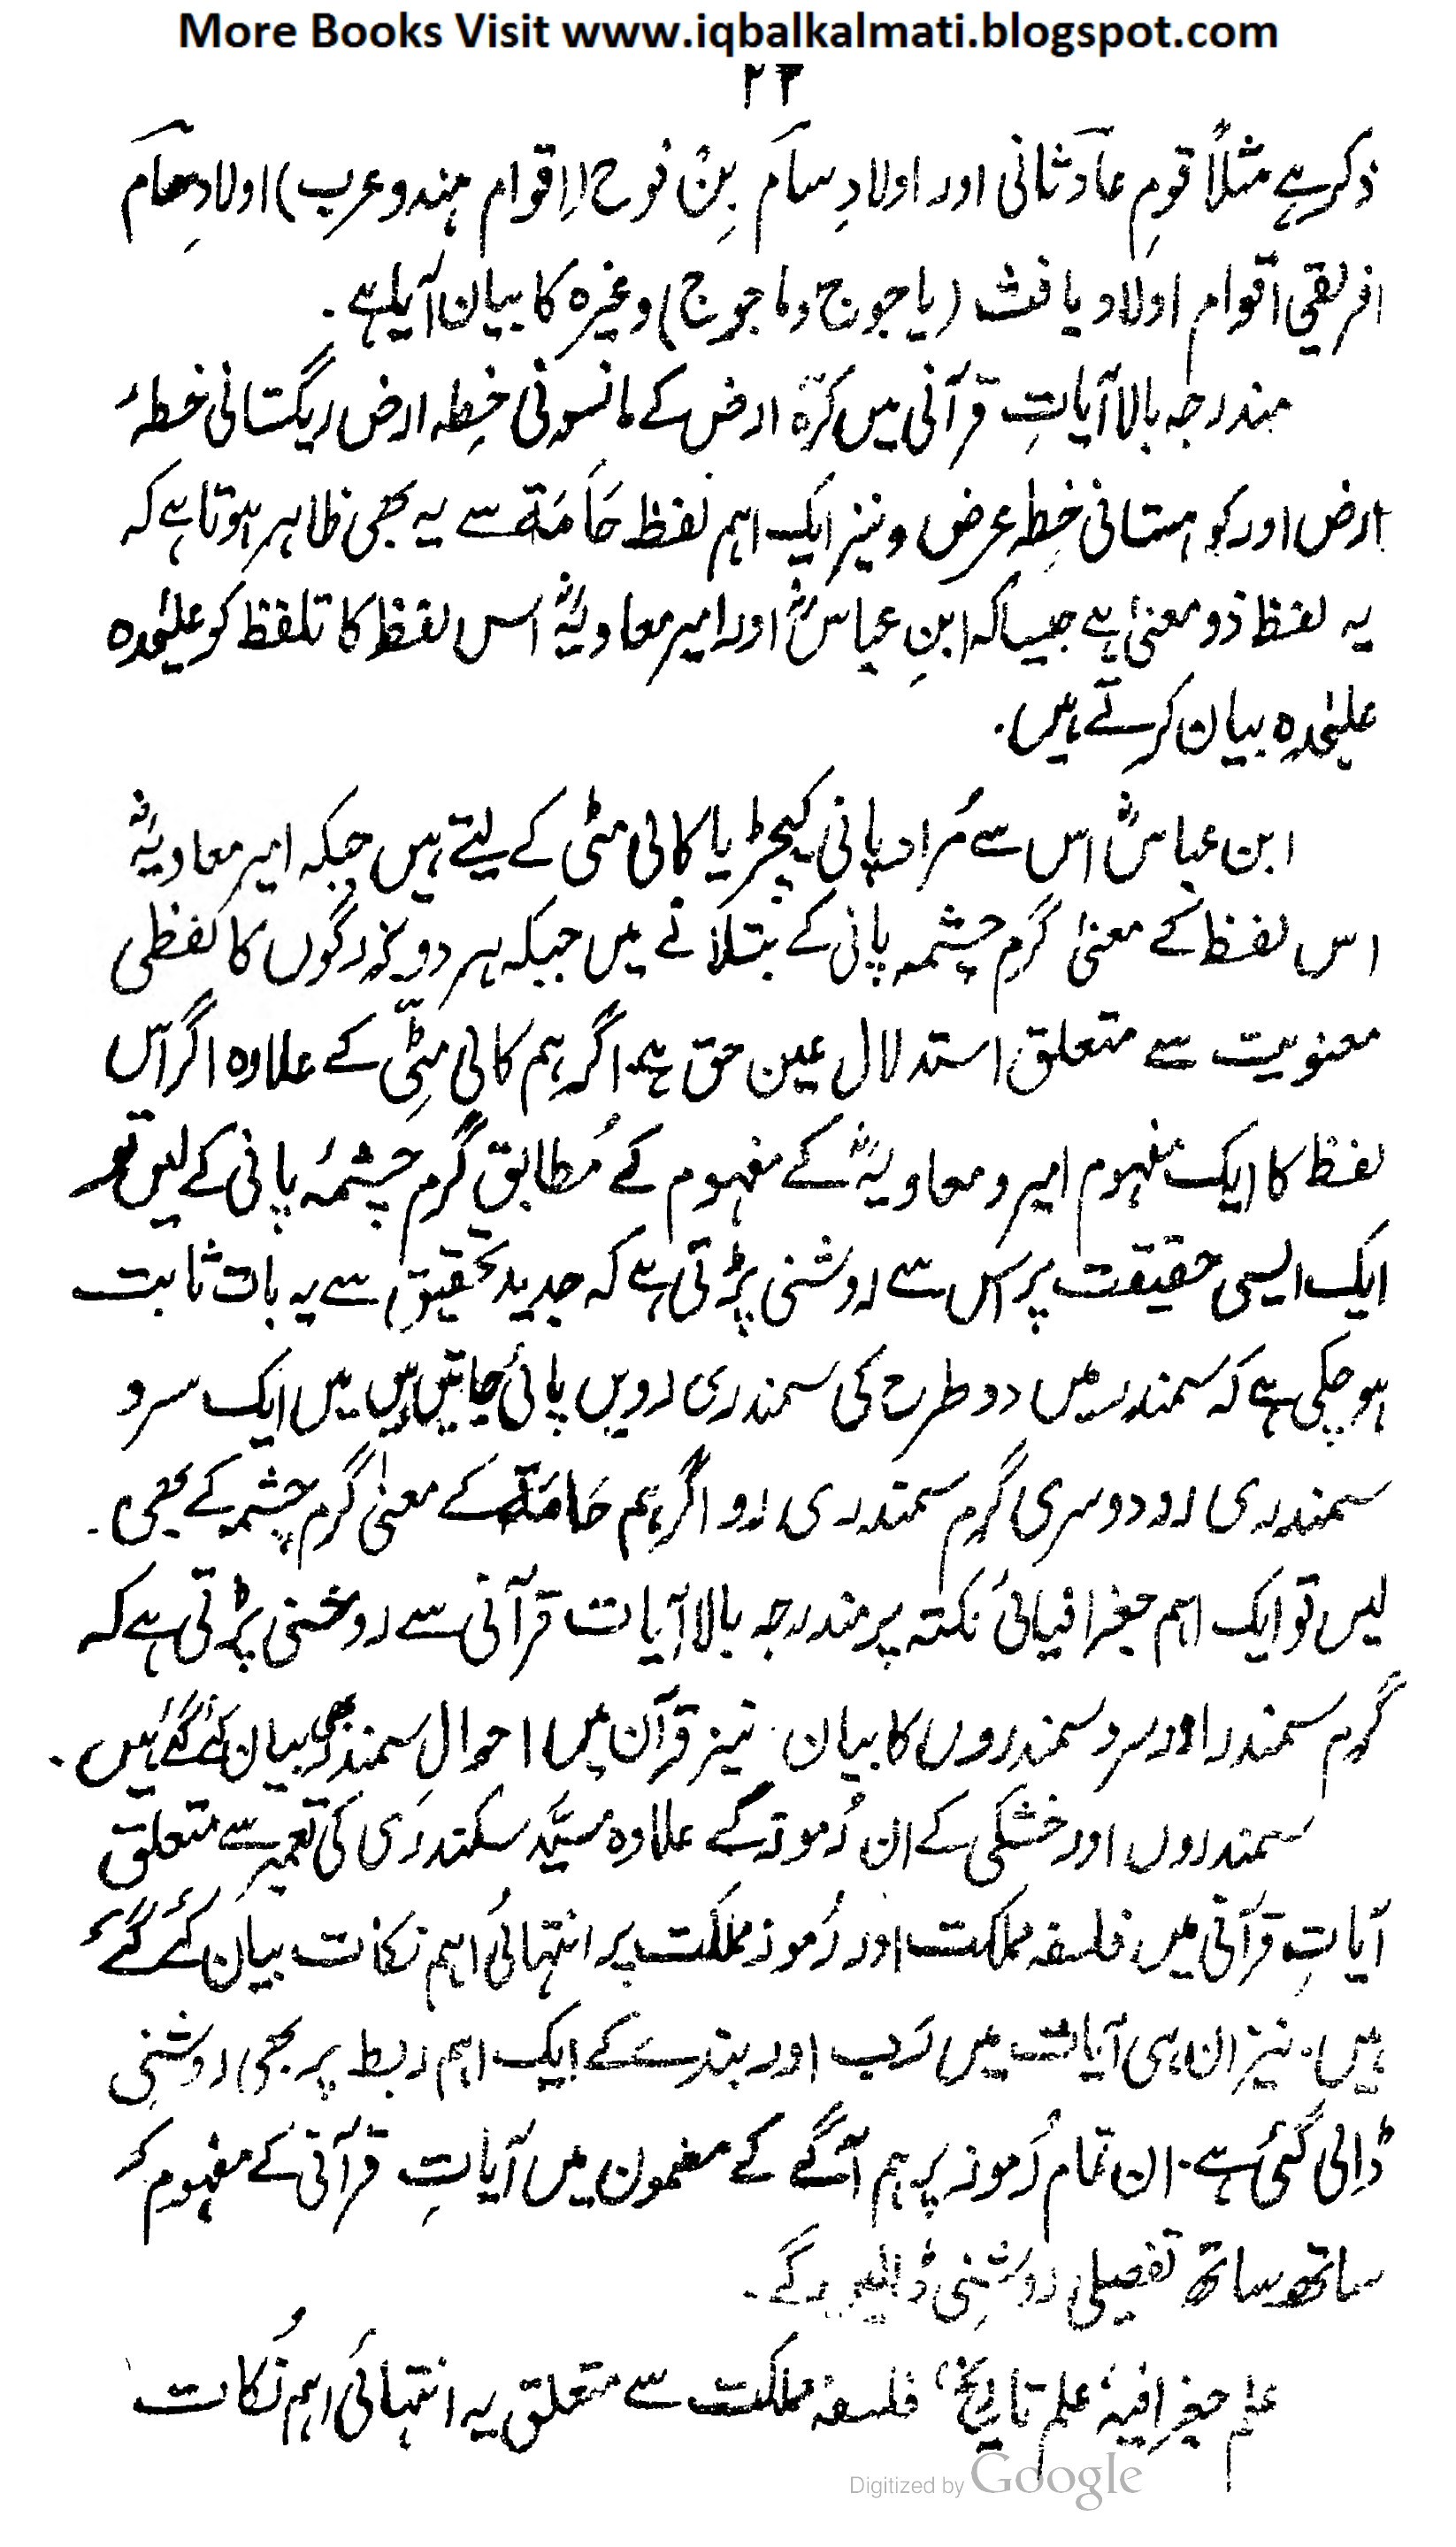 More Books Visit www.iqbalkalmati.blogspot.com
۲۳
ذکر ہے مثلاً قومِ عاد ثانی اور اولادِ سام بِن نوح (اقوام ہند و عرب) اولادِ حام
افریقی اقوام اولاد یافث (یاجوج و ماجوج) وغیرہ کا بیان آیا ہے۔
مندرجہ بالا آیاتِ قرآنی میں کرّہ ارض کے مانسونی خِطہ ارض ریگستانی خطۂ
ارض اور کوہستانی خِطہ عرض و نیز ایک اہم لفظ حَامَۃ سے یہ بھی ظاہر ہوتا ہے کہ
یہ لفظ ذو معنیٰ ہے جیسا کہ ابنِ عباسؓ اور امیر معاویہؓ اس لفظ کا تلفظ کو علیٰحدہ
علیٰحدہ بیان کرتے ہیں۔
ابن عباسؓ اس سے مُراد پانی کیچڑ یا کالی مٹی کے لیتے ہیں جبکہ امیر معاویہؓ
اس لفظ کے معنیٰ گرم چشمہ پانی کے بتلاتے ہیں جبکہ ہر دو بزرگوں کا لفظی
معنویت سے متعلق استدلال عین حق ہے۔ اگر ہم کالی مِٹّی کے علاوہ اگر اس
لفظ کا ایک مفہوم امیر و معاویہؓ کے مفہوم کے مُطابق گرم چشمۂ پانی کے لیں تو
ایک ایسی حقیقت پر اس سے روشنی پڑتی ہے کہ جدید تحقیق سے یہ بات ثابت
ہو چکی ہے کہ سمندر میں دو طرح کی سمندری رویں پائی جاتیں ہیں میں ایک سرد
سمندری رو دوسری گرم سمندری رو اگر ہم حَامَۃ کے معنیٰ گرم چشمہ کے بھی۔
لیں تو ایک اہم جغرافیائی نکتہ پر مندرجہ بالا آیات قرآنی سے روشنی پڑتی ہے کہ
گرم سمندر اور سرد سمندروں کا بیان۔ نیز قرآن میں احوالِ سمندر بھی بیان کئے گئے ہیں۔
سمندروں اور خشکی کے ان رُموز کے علاوہ سیَّد سکندری کی تعمیر سے متعلق
آیاتِ قرآنی میں فلسفہ مملکت اور رُموز مملکت پر انتہائی اہم نکات بیان کئے گئے
ہیں۔ نیز ان ہی آیات میں رَب اور بندے کے ایک اہم ربط پر بھی روشنی
ڈالی گئی ہے۔ ان تمام رُموز پر ہم آگے کے مضمون میں آیاتِ قرآنی کے مفہوم کے
ساتھ ساتھ تفصیلی روشنِی ڈالیں گے۔
علم جغرافیہ، علم تاریخ، فلسفۂ مملکت سے متعلق یہ انتہائی اہم نُکات
Digitized by Google